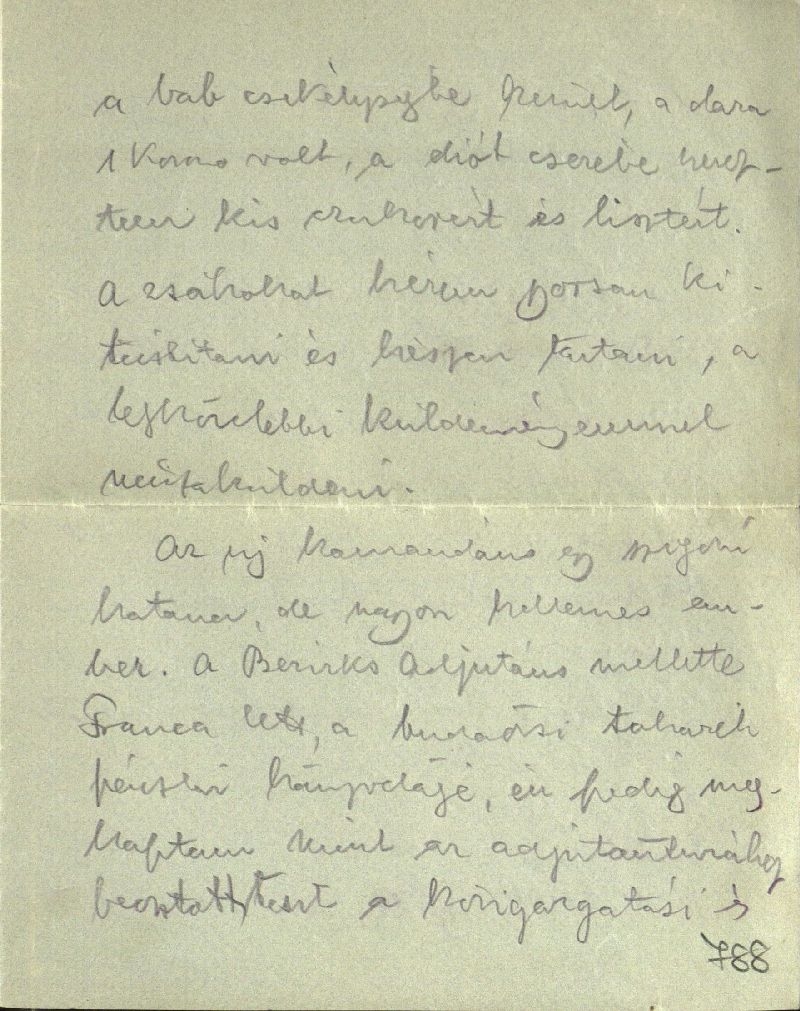 a bab csekélységbe került, a dara
1 Korona volt, a diót cserébe veszt-
tem kis czukorért és lisztért.
A zsákokat kérem gorsan ki-
tisztitani és készen tartani, a
legközelebbi küldeményemmel
visszaküldeni.
Az uj kommandáns egy szigorú
katona, de nagyon kellemes em-
ber. A Bezirks Adjutáns mellette
Franca lett, a budaörsi takarék
pénztári könyvelője, én pedig meg-
kaptam mint az adjutanturához
beosztott tiszt a közigazgatási és
788